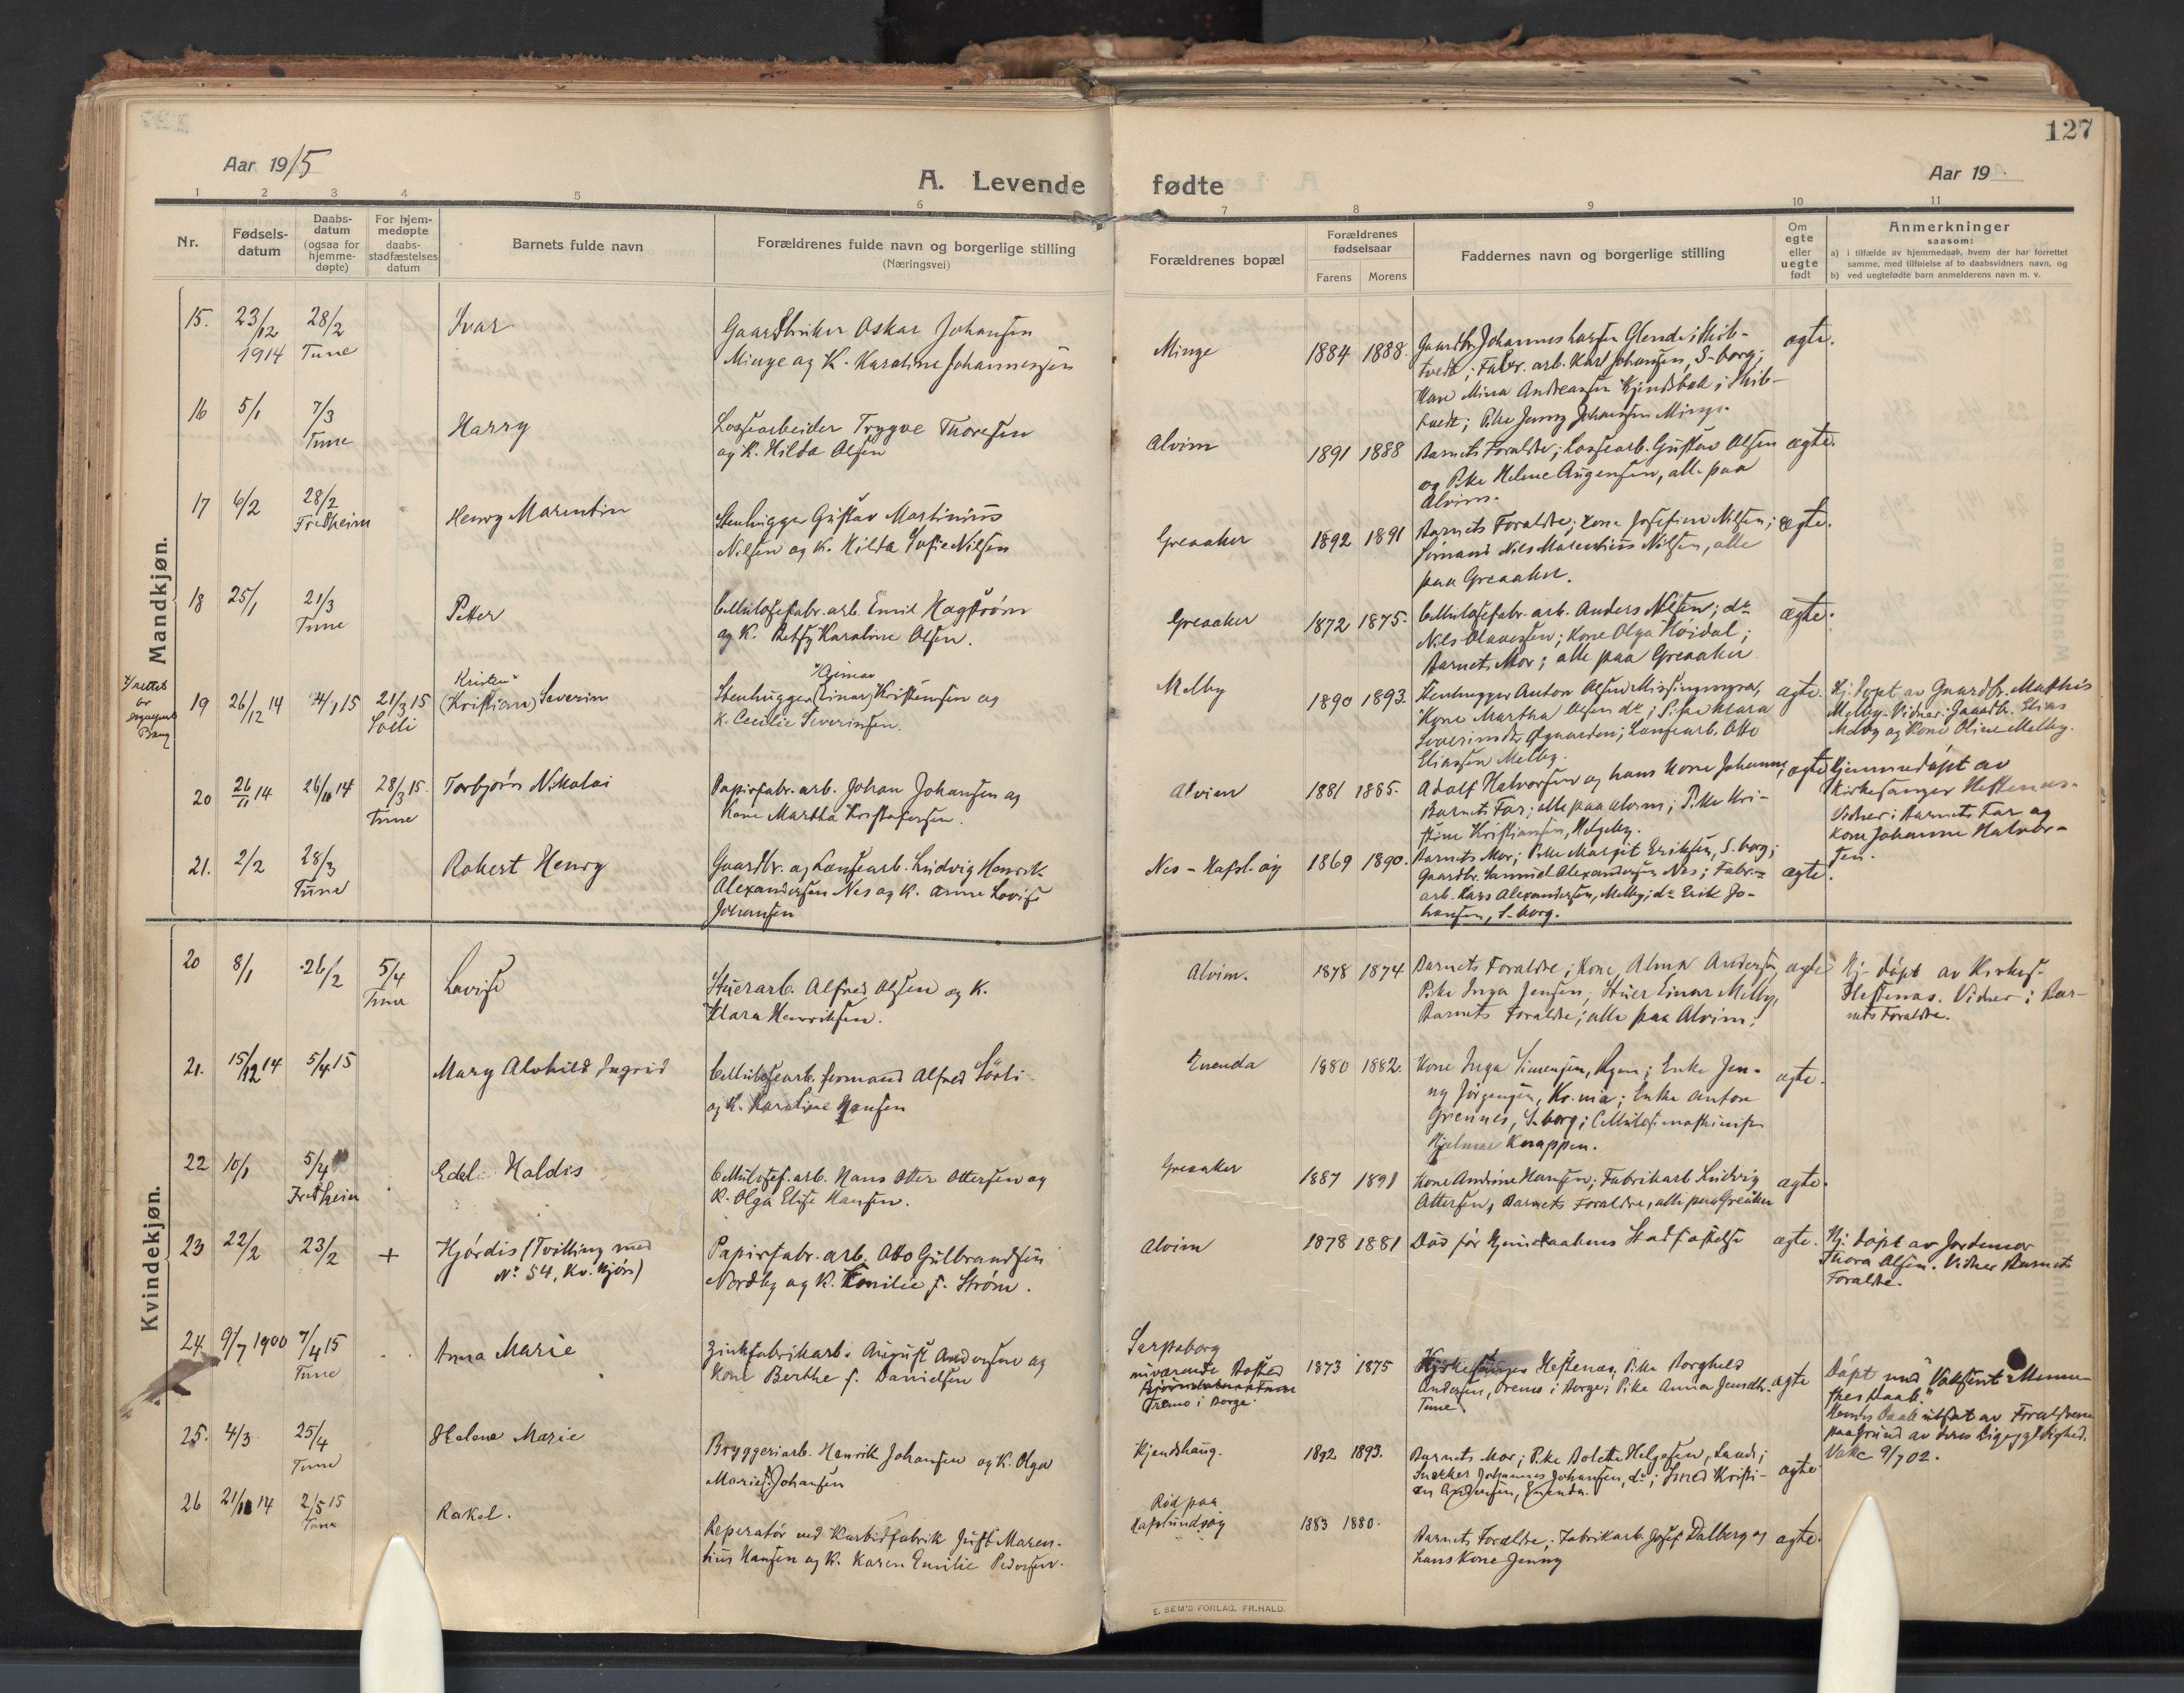 127
Aar 1915
A. Levende fødte
Aar 19
1 2 3 4 5 6 7 8 9 10 11
Nr.
Fødsels-
datum
Daabs-
datum
(ogsaa for
hjemme-
døpte)
For hjem-
medøpte
daabs-
stadfæstelses
datum
Barnets fulde navn
Forældrenes fulde navn og borgerlige stilling
(Næringsvei)
Forældrenes bopæl
Forældrenes
fødselsaar
Farens Morens
Faddernes navn og borgerlige stilling
Om
egte
eller
uegte
født
Anmerkninger
saasom:
a) i tilfælde av hjemmedaab, hvem der har forrettet
samme, med tilføielse af to daabsvidners navn, og
b) ved uegtefødte barn anmelderens navn m. v.
Mandkjøn.
15. 23/12 1914
28/2 Tune
Ivar
Gaardbruker Oskar Johansen
Minge og K. Karoline Johannessen
Minge
1884 1888.
Gaardbr. Johannes Larsen Glende i Skib-
tvedt; Fabr. arb. Karl Johansen, S-borg;
Kone Mina Andreassen Kjendsbak i Skib-
tvedt; Pike Jenny Johansen Minge.
egte.
16 5/1
7/3 Tune
Harry
Lossearbeider Trygve Thoresen
og K. Hilda Olsen
Alvim
1891 1888
Barnets Foraldre; Lossearb. Gustav Olsen
og Pike Helene Augensen, alle paa
Alvim.
egte.
17 6/2
28/2 Fredheim
Henry Marentin
Stenhugger Gustav Martinius
Nilsen og K. Hilda Sofie Nilsen
Greaaker
1892 1891
Barnets Foraldre; Kone Josefine Nilsen;
Sømand Nils Marentius Nilsen, alle
paa Greaaker.
egte.
18 25/1
21/3 Tune
Petter
Cellulosefabr. arb. Emil Hagstrøm
og K. Betsy Karoline Olsen.
Greaaker
1872 1875.
Cellulosefabr. arb. Anders Nilsen; do
Nils Olavessen; Kone Olga Høidal;
Barnets Mor; alle paa Greaaker
egte.
19 26/12 14
4/1 15
21/3 15 Solli
Kristen
(Kristian) Severin
Stenhugger (Einar) Kristensen og
K. Cecilie Severinsen.
Melby
1890 1893.
Stenhugger Anton Olsen Missingmyra,
Kone Martha Olsen do; Pike Klara
Severinsdt. Øgaarden; Lossearb. Otto
Eliassen Melby.
egte.
Hj. døpt av Gaardbr. Mathis
Melby. Vidner: Gaardb. Elias
Melby og Kone Oline Melby.
20 26/11 14
26/11 14
28/3 15. Tune
Torbjørn Nikolai
Papirfabr. arb. Johan Johansen og
Kone Martha Kristofersen.
Alvim
1881 1885.
Adolf Halvorsen og hans Kone Johanne,
Barnets Far; alle paa Alvim; Pike Kri-
stine Kristiansen, Helgeby.
egte
Hjemmedøpt av
Kirkesanger Heftenæs.
Vidner: Barnets Far og
Kone Johanne Halvor-
sen.
21. 2/2
28/3 Tune
Robert Henry
Gaardbr. og Lossearb. Ludvig Henrik
Alexandersen Nes og K. Anna Lovise
Johansen
Nes - Hafsl.øy
1869 1890.
Barnets Mor; Pike Margit Eriksen, S. borg;
Gaardbr. Samuel Alexandersen Nes; Fabr.
arb. Lars Alexandersen, Melby; do Erik Jo-
hansen, S-borg.
egte.
Kvindekjøn.
20 8/1
26/2
5/4 Tune
Lovise
Stuerarb. Alfred Olsen og K.
Klara Henriksen.
Alvim.
1878 1874
Barnets Foraldre; Kone Alma Andersen,
Pike Inga Jensen; Stuer Einar Melby,
Barnets Foraldre; alle paa Alvim.
egte
Hj. døpt av Kirkes.
Heftenæs. Vidner: Bar-
nets Foraldre.
21. 15/12 14
5/4 15
Mary Alvhild Ingrid
Cellulosearb. Alfred Sørli
og K. Karoline Hansen
Enenda
1880 1882.
Kone Inga Simensen, Rygen; Enke Jen-
ny Jørgensen, Kr.nia; Enke Anton
Grennes, S-borg; Cellulosemaskinist
Hjalmar Knappen.
egte.
22 10/1
5/4 Fredheim
Edel Haldis
Cellulosef. arb. Hans Otter Ottersen og
K. Olga Elise Hansen.
Greaaker
1887 1891
Kone Andrine Hansen; Fabrikarb. Ludvig
Ottersen, Barnets Foraldre, alle paa Greaaker
egte.
23 22/2
23/2
+
Hjørdis (Tvilling med
No 54, Kv. kjøn)
Papirfabr. arb. Otto Gulbrandsen
Nordby og K. Emilie f. Strøm.
Alvim
1878 1881
Død før Hjemmedaabens Stadfæstelse
egte.
Hj. døpt av Jordemor
Thora Olsen. Vidner Barnets
Foraldre.
24. 9/7 1900
7/4 15 Tune
Anna Marie
Zinkfabrikarb. August Andersen og
Kone Berthe f. Danielsen
Sarpsborg
nuværende Bosted
Oremo i Borge.
1873 1875
Kirkesanger Heftenæs, Pike Borghild
Andersen, Oremo i Borge; Pike Anna
Tune.
egte
Døpt med "Voksent Menne-
skes Daab."
Hendes Daab utsat av Foraldrene
paa Grund av deres Ligegyldighed.
Vakc. 9/7 02.
25. 4/3
25/4 Tune
Helene Marie
Bryggeriarb. Henrik Johansen og K. Olga
Marie f. Johansen
Kjendshaug.
1892 1893.
Barnets Mor; Pike Bolette Helgesen, Lande;
Snekker Johannes Johansen, do; Smed Kristi-
an Andersen, Enenda.
egte
26 21/11 14
2/5 15 Tune
Rakel.
Reparatør ved Karbidfabrik Just Maren-
tius Hansen og K. Karen Emilie Pedersen.
Rød paa
Hafslundsøy
1883 1880.
Barnets Foraldre; Fabrikarb. Josef Dalberg og
hans Kone Jenny
egte.
E. SEM'S FORLAG, FR.HALD.